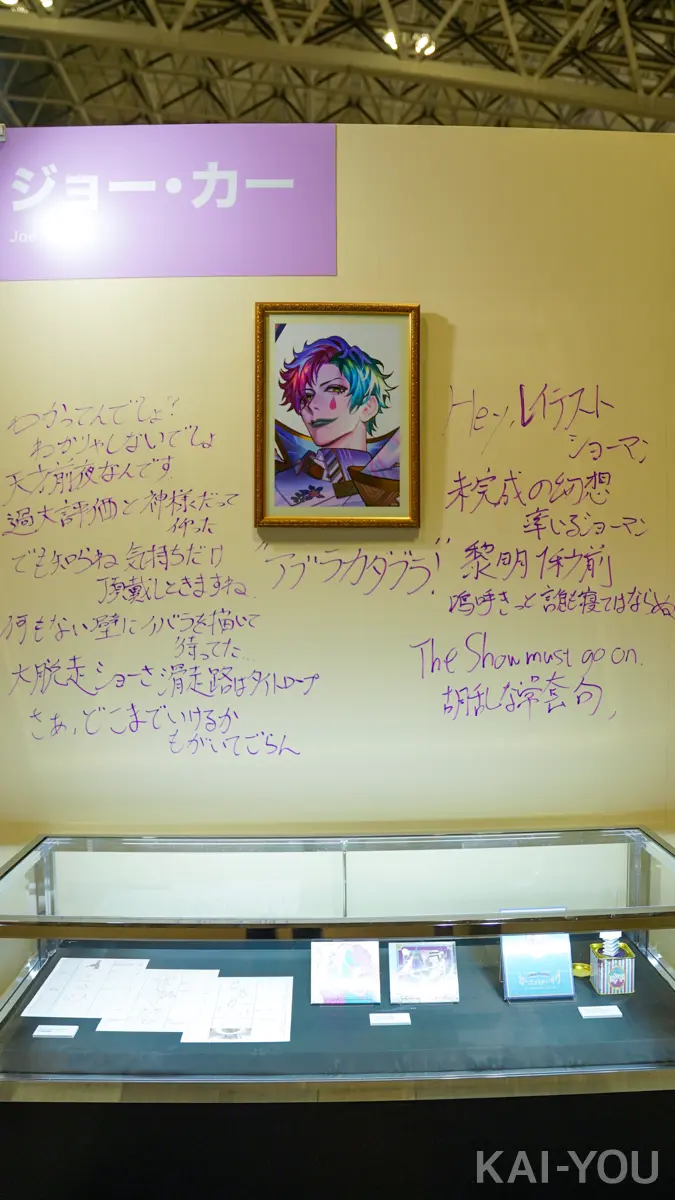 ジョー・カー
Joe
わかってんでしょ?
わかりゃしないでしょ
天才前夜なんです
過大評価と神様くだって
でも知らね 気持ちだけ
頂戴しときますね
何もない壁にイバラを描いて
待ってた
大脱走ショーさ 滑走路はタイトロープ
さあ、どこまでいけるか
もがいてごらん
"アブラカダブラ!"
Hey, レイテスト
ショーマン
未完成の幻想
率いるショーマン
黎明
前
嗚呼きっと誰も寝てはならぬ
The Show must go on.
胡乱な常套句,
KAI-YOU